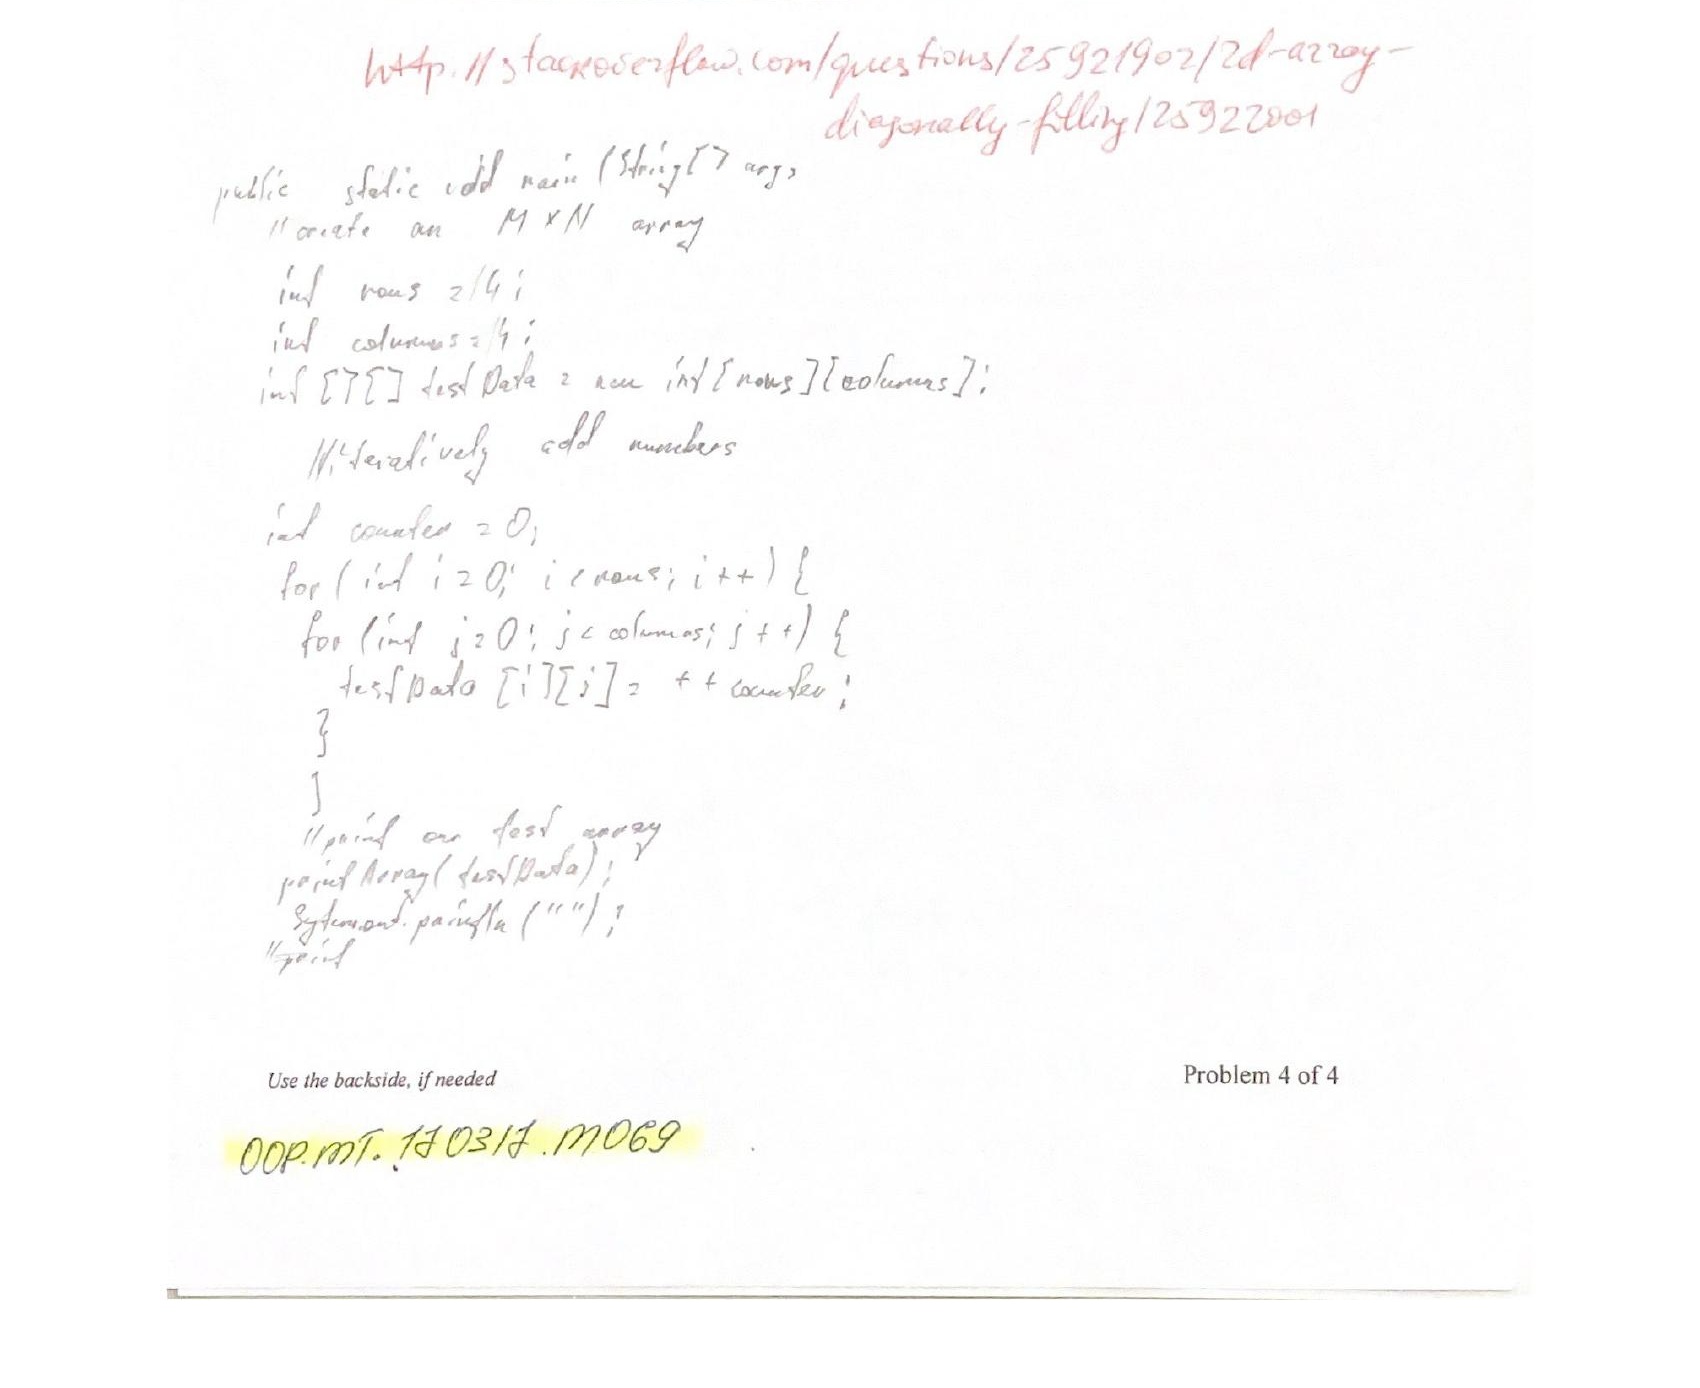 http://stackoverflow.com/questions/25921902/2d-array-
diagonally-filling/25922001
public static void main (String[] args
//create an M x N array
int rows = 4;
int columns = 4;
int [][] testData = new int[rows][columns];
//iteratively add numbers
int counter = 0;
for (int i = 0; i < rows; i++) {
for (int j = 0; j < columns; j++) {
testData [i][j] = ++counter;
}
}
//print our test array
printArray(testData);
System.out.println ("");
//print
Use the backside, if needed
Problem 4 of 4
OOP.MT.170317.M069